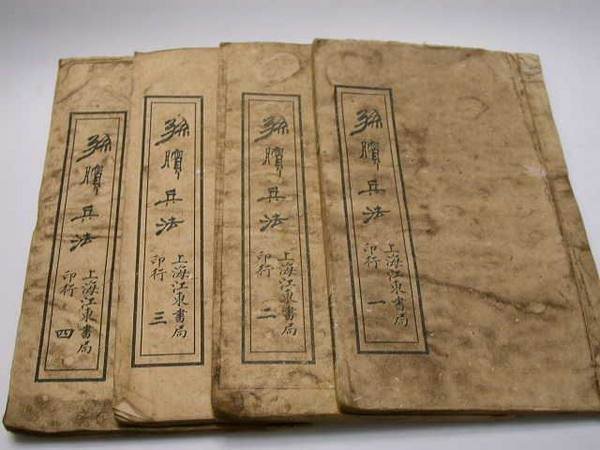 孫臏兵法
上海江東書局
印行 一
孫臏兵法
上海江東書局
印行 二
孫臏兵法
上海江東書局
印行 三
孫臏兵法
上海江東書局
印行 四